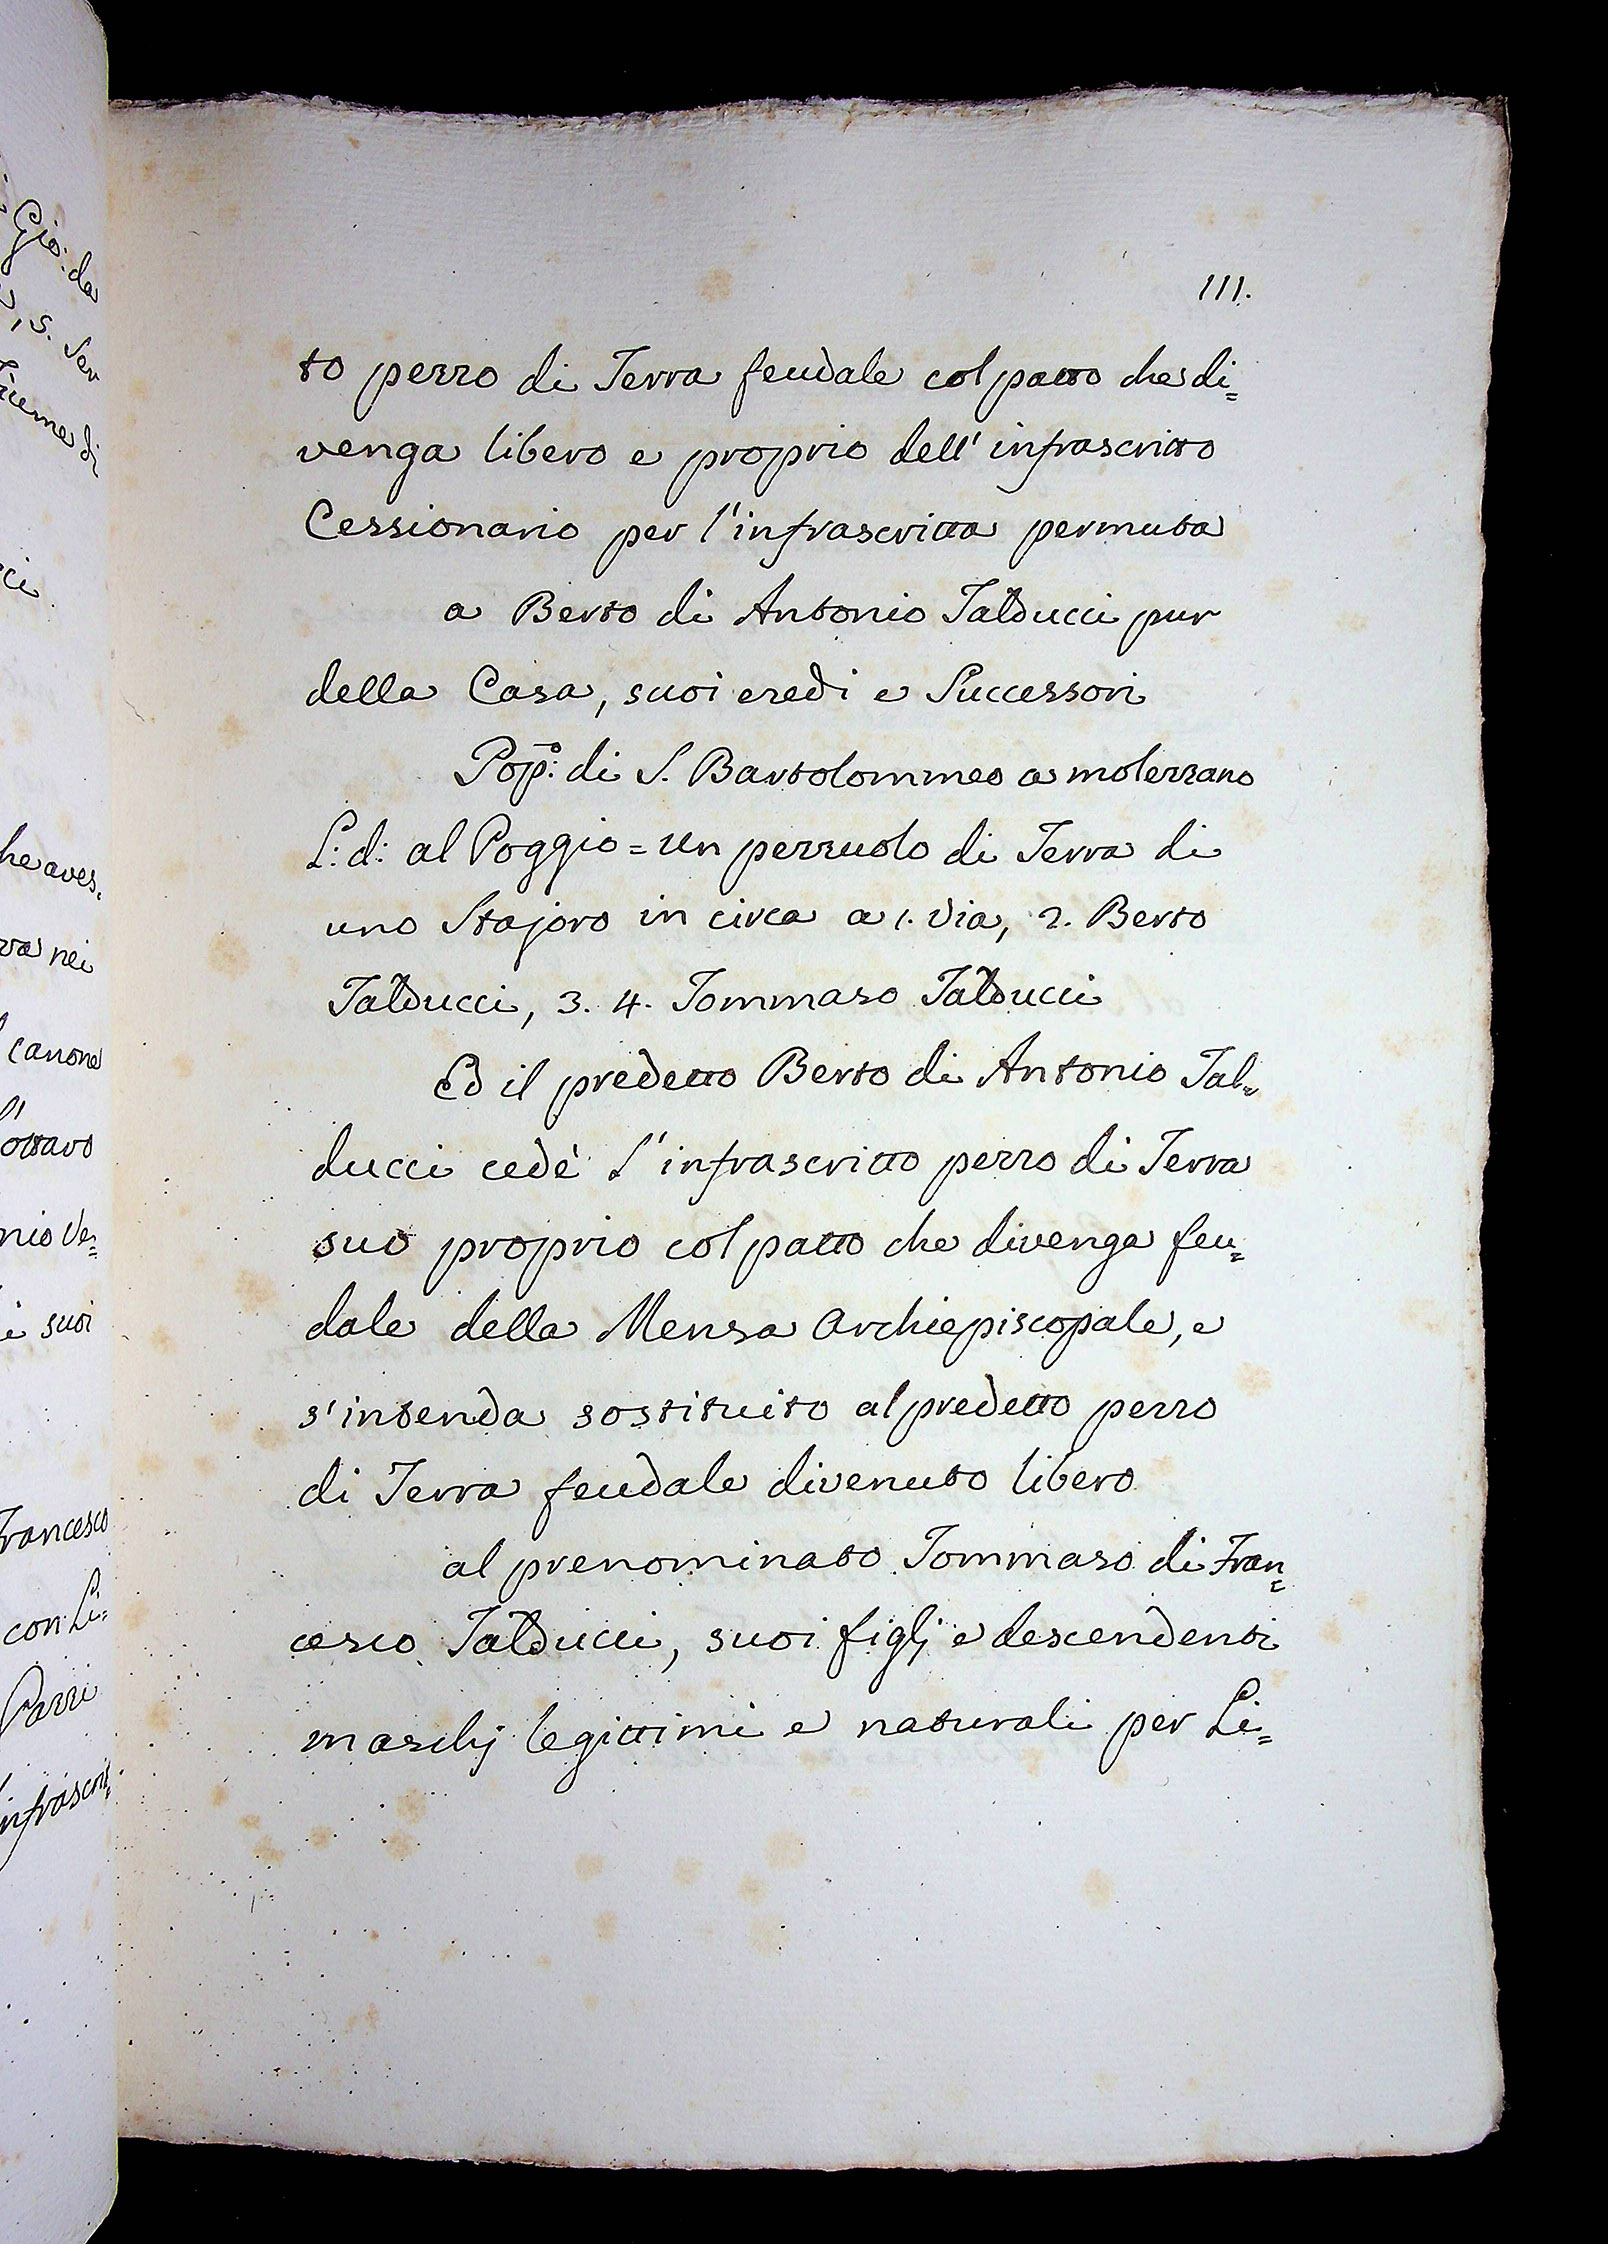 Gio: da
, S. Ser
di
ci
he aves=
va nei
canone
ottavo
nio Ve=
i suoi
Francesco
con Li=
Pazzi
infrascrit=
111.
to pezzo di Terra feudale col patto che di=
venga libero e proprio dell' infrascritto
Cessionario per l'infrascritta permuta
a Berto di Antonio Talducci pur
della Casa, suoi eredi e Successori
Pop:º di S. Bartolommeo a molezzano
L: d: al Poggio = Un pezzuolo di Terra di
uno Stajoro in circa a 1. Via, 2. Berto
Talducci, 3. 4. Tommaso Talducci
Ed il predetto Berto di Antonio Tal=
ducci cedè l'infrascritto pezzo di Terra
suo proprio col patto che divenga feu=
dale della Mensa Archiepiscopale, e
s'intenda sostituito al predetto pezzo
di Terra feudale divenuto libero
al prenominato Tommaso di Fran=
cesco Talducci, suoi figlj e descendenti
maschj legittimi e naturali per Li=